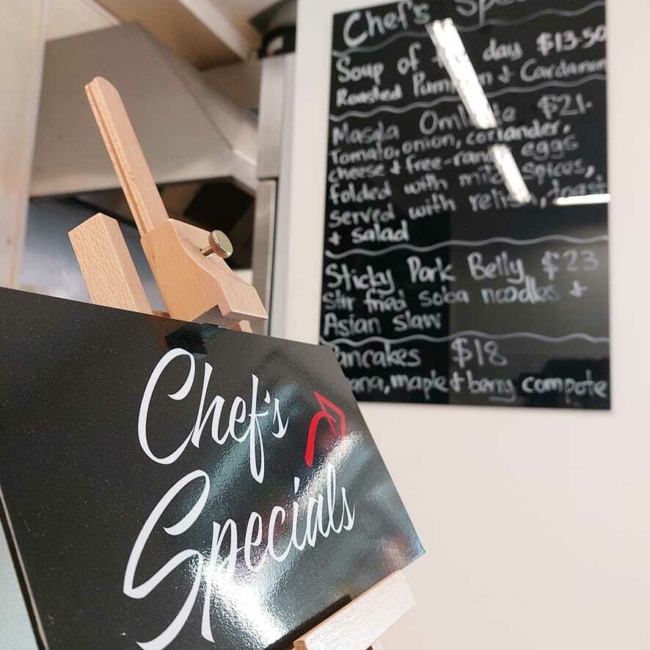 Chef's Spe
Soup of the day $13.50
Roasted Pumpkin & Cardamom
Masala Omlette $21.
Tomato, onion, coriander,
cheese & free-range eggs
folded with mild spices,
served with relish, toast
& salad
Sticky Pork Belly $23
stir fried soba noodles &
Asian slaw
Pancakes $18
ana, maple & berry compote
Chef's
Specials